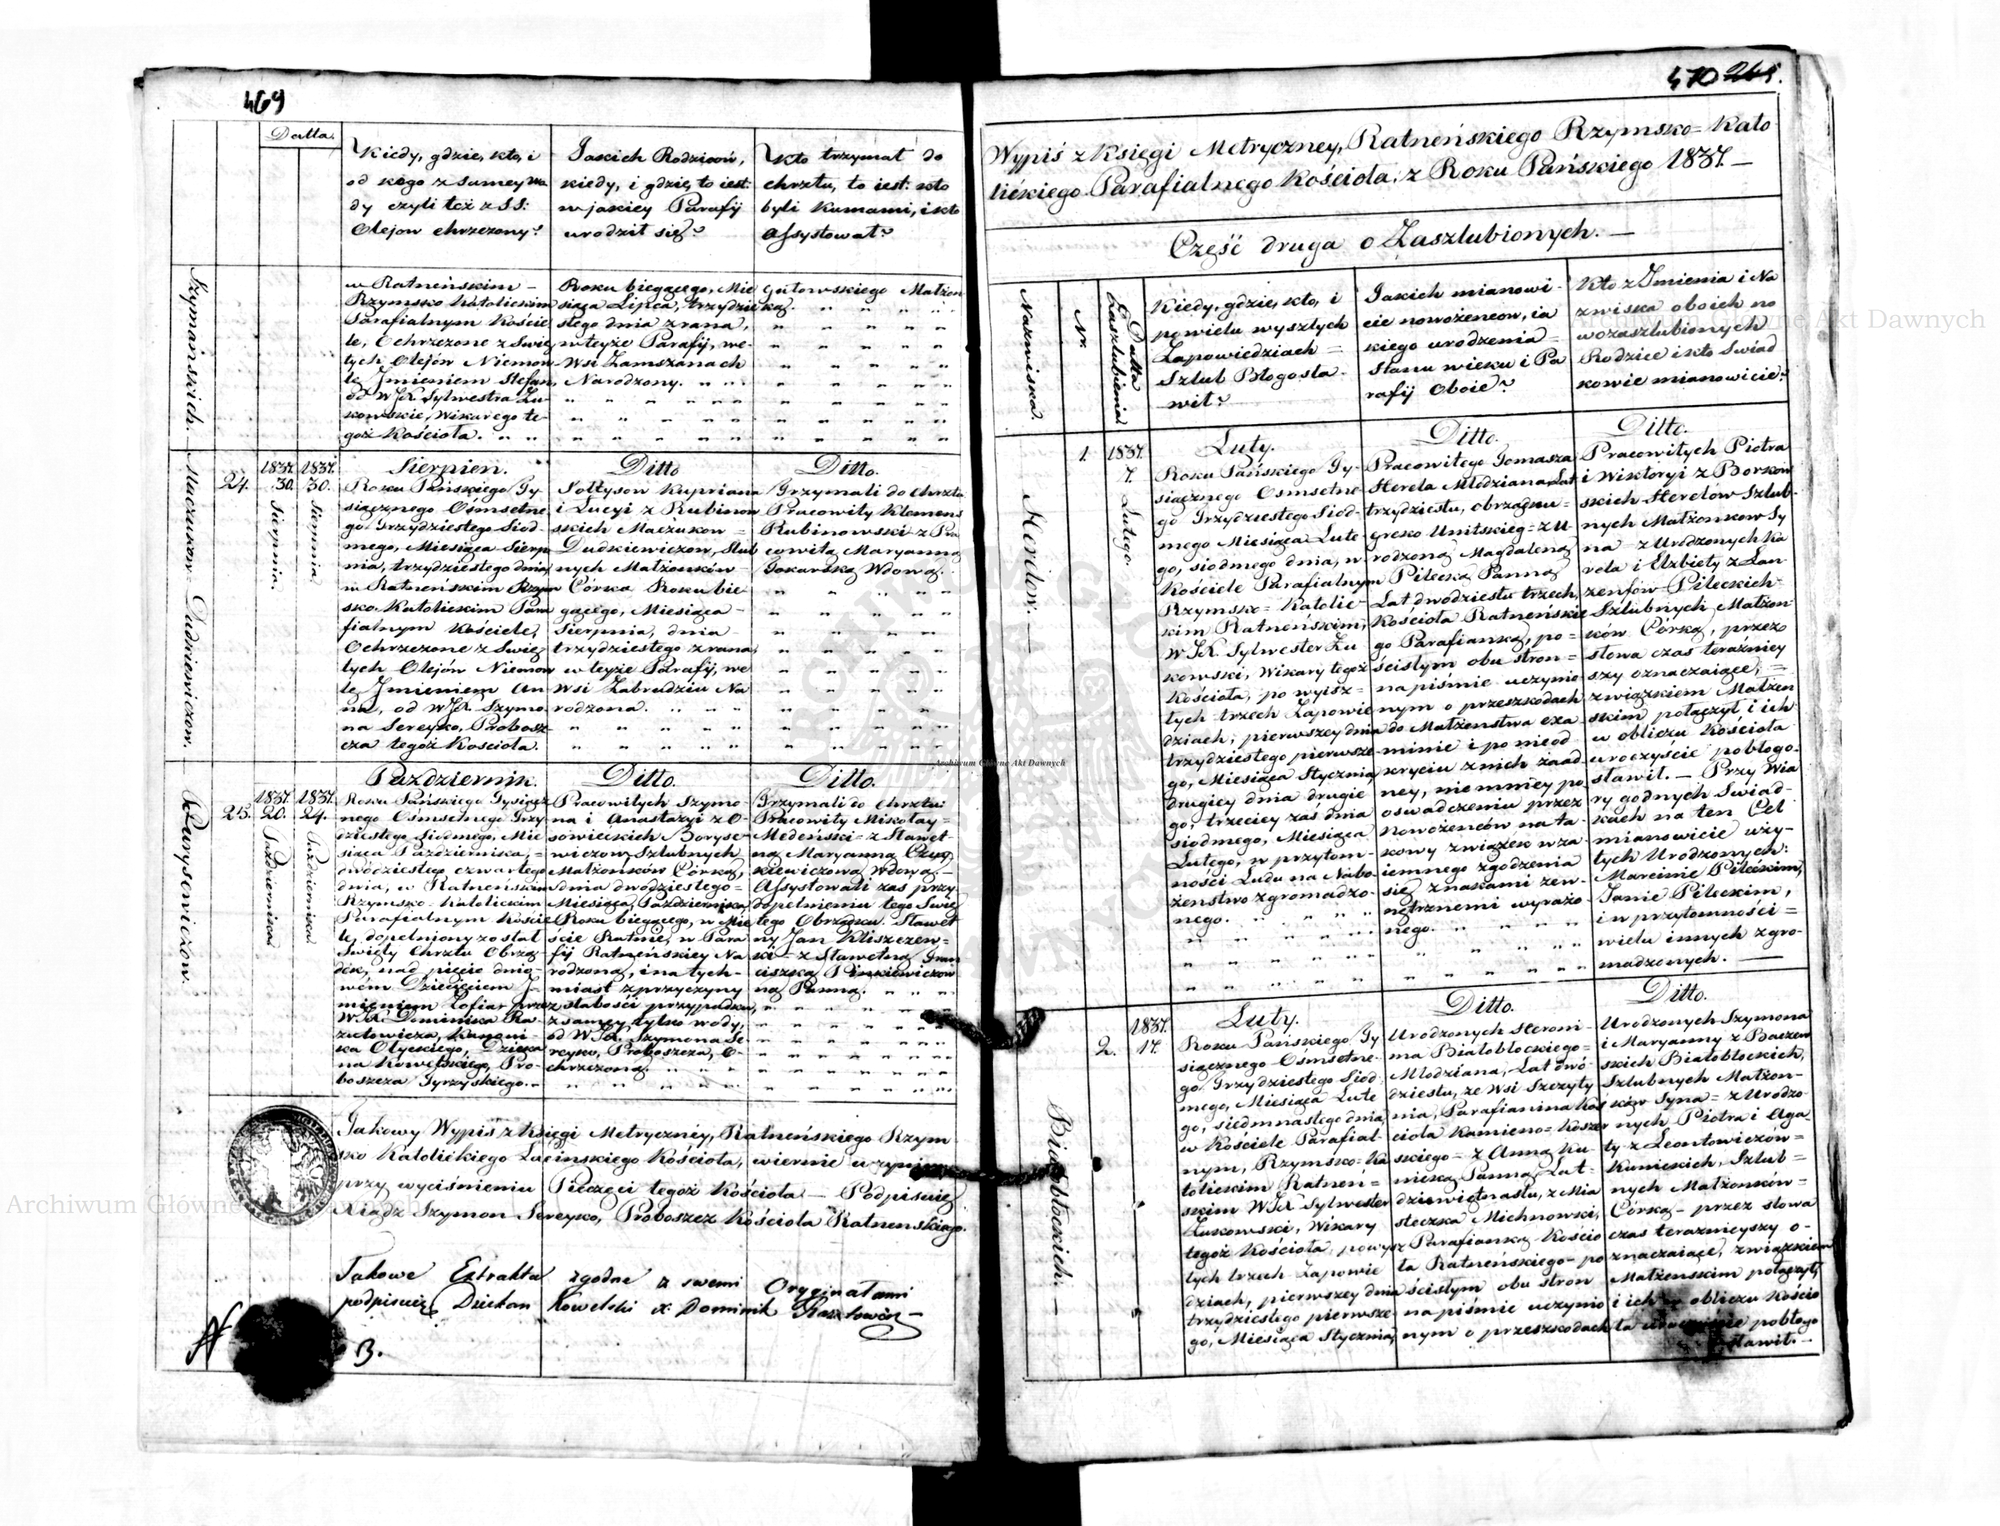 469
Datta.
Kiedy, gdzie, kto, i
od kogo z samey wo
dy czyli też z SS:
Olejow chrzczony?
Jakich Rodzicow,
kiedy, i gdzie, to iest:
w jakiey Parafij
urodził się?
Kto trzymał do
chrztu, to iest: kto
byli Kumami, i kto
Assystował?
Szymańskich.
w Ratneńskim –
Rzymsko Katolickim
Parafialnym Koście
le, Ochrzczone z Swię
tych Olejów Niemow
le Jmieniem Stefan,
od W JX Sylwestra Żu
kowskie, Wikarego te-
goż Kościoła.
Roku biegącego, Mie
siąca Lipca, trzydzie
stego dnia z rana,
w teyże Parafij, we
Wsi Zamszanach
Narodzony.
Gutowskiego Małżon
ką.
Maczukow Dudkiewiczow.
24.
1837.
30.
Sierpnia.
1837.
30.
Sierpnia
Sierpien.
Roku Pańskiego Ty-
siącznego Osmsetne
go Trzydziestego Siod-
mego, Miesiąca Sierp
nia, trzydziestego dnia,
w Ratneńskim Rzym
sko. Katolickim Para
fialnym Kościele,
Ochrzczone z Swię
tych Olejów Niemow
le Jmieniem An
na, od W JX Szymo
na Sereyko, Probosz
cza tegoż Kościoła.
Ditto
Sołtysow Kupriana
i Lucyi z Rubinow
skich Maczukow =
Dudkiewiczow, Slub
nych Małżonków –
Córka Roku bie
gącego, Miesiąca –
Sierpnia, dnia
trzydziestego z rana,
w teyże Parafij, we
Wsi Zabrudziu Na
rodzona.
Ditto.
Trzymali do chrztu
Pracowity Klemens
Rubinowski z Pra
cowitą Maryanną
Tokarską Wdową.
Borysewiczow.
25.
1837.
20.
Października
1837.
24.
Października
Październik.
Roku Pańskiego Tysiącz
nego Osmsetnego Trzy
dziestego Siodmego, Mie
siąca Października, =
dwódziestego czwartego
dnia, w Ratneńskim
Rzymsko. Katolickim
Parafialnym Koście
le, dopełniony został
Swięty Chrztu Obrzą
dek, nad pięcio dnio-
wem Dziecięciem J-
mieniem Zofia, przez
W JX Dominika Ra
zutowicza, Kanoni
ka Ołyckiego, Dzieka
na Kowelskiego, Pro-
boszcza Tyrzyskiego. –
Ditto.
Pracowitych Szymo
na i Anastazyi z O-
sowieckich Boryse-
wiczow, Szlubnych
Małżonków Córka,
dnia dwodziestego =
Miesiąca, Października,
Roku biegącego, w Mie
ście Ratnie, w Para
fij Ratneńskiey Na
rodzona, i na tych-
miast z przyczyny
słabości przypadku,
z samey tylko wody,
od W JX. Szymona Se
reyko, Proboszcza, O-
chrzczona.
Ditto.
Trzymali do chrztu:
Pracowity Mikołay-
Medeński = z Sławet
ną Maryanną Czug
kiewiczową Wdową. –
Assystowali zaś przy
dopełnieniu tego Swię
tego Obrządku. Sławet
ny Jan Kliszczew-
ski – z Sławetną Fran
ciszką Pinkiewiczow
ną Panną.
Takowy Wypis z Księgi Metryczney, Ratneńskiego Rzym
sko Katolickiego Łacińskiego Kościoła, wiernie uczynion
przy wyciśnieniu Pieczęci tegoż Kościoła – Podpisuię
Xiądz Szymon Sereyko, Proboszcz Kościoła Ratnenskiego.
Takowe Extrakta zgodne z swemi Oryginałami
podpisuię Dziekan Kowelski X: Dominik Razutowicz –
B.
470 265.
Wypis z Księgi Metryczney, Ratneńskiego Rzymsko = Kato
lickiego Parafialnego Kościoła, z Roku Pańskiego 1837. –
Część druga o Zaszlubionych. –
Nazwiska.
Nr.
Datta
Zaszlubienia
Kiedy, gdzie, kto, i
po wielu wyszłych
Zapowiedziach =
Szlub Błogosła-
wił?
Jakich mianowi-
cie nowożencow, ia
kiego urodzenia =
Stanu wieku i Pa
rafij Oboie?
Kto z Jmienia i Na
zwiska oboich no
wozaszlubionych
Rodzice i kto Swiad
kowie mianowicie?
Herdow. –
1.
1837.
7.
Lutego.
Luty.
Roku Pańskiego Ty-
siącznego Osmsetne
go Trzydziestego Siod-
mego Miesiąca Lute
go, siodmego dnia, w
Kościele Parafialnym
Rzymsko = Katolic-
kim Ratneńskim,
W JX. Sylwester Żu
kowski, Wikary tegoż
Kościoła, po wyisz =
łych trzech Zapowie
dziach, pierwszey dnia
trzydziestego pierwsze
go, Miesiąca Stycznia
drugiey dnia drugie
go, trzeciey zaś dnia
siodmego, Miesiąca
Lutego, w przytom-
ności Ludu na Nabo
żenstwo zgromadzo-
nego.
Ditto.
Pracowitego Tomasza
Hereła Młodziana, Lat
trzydziestu, obrządku =
Greko Unitskieg = z U-
rodzoną Magdaleną
Pilecką Panną
Lat dwodziestu trzech,
Kościoła Ratneńskie
go Parafianką, po-
ścisłym obu stron =
na piśmie uczynio
nym o przeszkodach
do Małżenstwa exa
minie i po nieod
kryciu z nich żaad
ney, nie mniey po
oswadczeniu przez
Nowożenców na ta-
kowy związek wza
iemnego zgodzenia
się znakami zew-
nętrznemi wyrażo-
nego.
Ditto.
Pracowitych Piotra
i Wiktoryi z Borkow
skich Herełów Szlub-
nych Małżonkow Sy
na z Urodzonych Ka
rola i Elżbiety z Lau
renców – Pileckich –
Szlubnych Małżon
ków Córką, przez
słowa czas teraźniey
szy oznaczaiące, =
związkiem Małżen
skim połączył i ich
w obliczu Kościoła
uroczyście pobłogo-
sławił. – Przy Wia
ry godnych Swiad-
kach na ten Cel
mianowicie uży-
tych Urodzonych:
Marcinie Pileckim,
Janie Pileckim,
i w przytomności =
wielu innych zgro-
madzonych. —
Białobłockich. –
2.
1837.
17.
Luty.
Roku Pańskiego Ty
siącznego Osmsetne-
go Trzydziestego Siod-
mego, Miesiąca Lute
go, siedmnastego dnia,
w Kościele Parafial-
nym, Rzymsko = Ka
tolickim Ratnen =
skim W JX Sylwester
Żukowski, Wikary
tegoż Kościoła, powysz
łych trzech Zapowie
dziach, pierwszey dnia
trzydziestego pierwsze
go, Miesiąca Stycznia,
Ditto.
Urodzonych Heroni-
ma Białobłockiego =
Młodziana, Lat dwó-
dziestu, ze Wsi Szczyty
nia, Parafianina Koś
cioła Kamieno = Koszer
skiego – z Anną Ku
nicką Panną, Lat –
dziewiętnastu, z Mia
steczka Michnowski,
Parafianką Kościo
ła Ratneńskiego – po
ścisłym obu stron
na piśmie uczynio
nym o przeszkodach
Ditto.
Urodzonych Szymona
i Maryanny z Baczew
skich Białobłockich,
Szlubnych Małżon-
ków Syna = z Urodzo-
nych Piotra i Aga
ty z Leontowiczów =
Kunickich, Szlub =
nych Małżonków =
Córką – przez słowa
czas teraznieyszy o-
znaczaiące, związkiem
Małżenskim połączył,
i ich w obliczu Kościo
ła uroczyście pobłogo
sławił. –